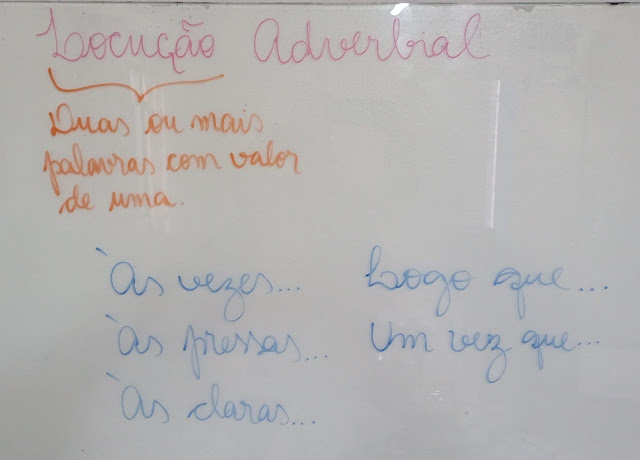 Locução Adverbial
Duas ou mais
palavras com valor
de uma.
Às vezes... Logo que...
Às pressas... Um vez que...
Às claras...